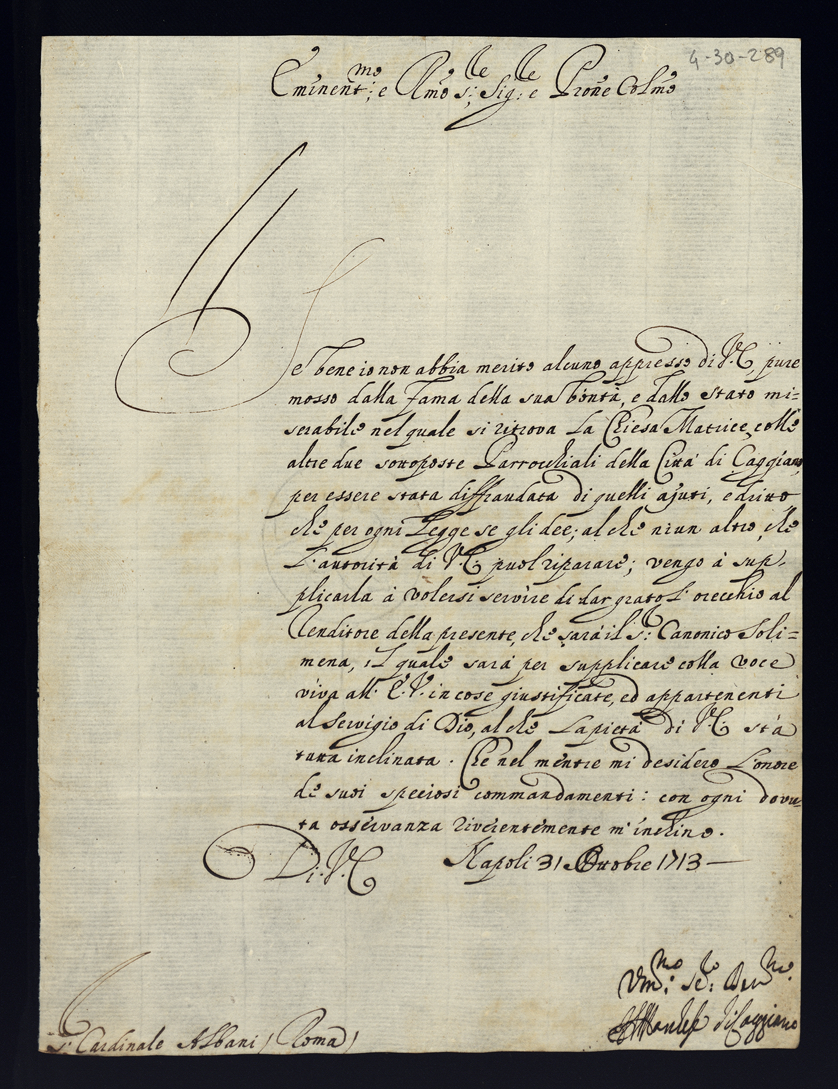 4-30-289
Eminent.mo e Rmo s.r Sig.re e Prone Colmo
Se bene io non abbia merito alcuno appresso di V.E, pure
mosso dalla Fama della sua bontà, e dallo stato mi=
serabile nel quale si ritrova la Chiesa Matrice, colle
altre due sottoposte Parrocchiali della Città di Caggiano,
per essere stata diffraudata di quelli ajuti, e dritto
che per ogni Legge se gli dee; al che niun altro, che
l'autorità di V.E puol riparare; vengo à sup=
plicarla à volersi servire di dar grato l'orecchio al
Renditore della presente, che sarà il s.r Canonico Soli=
mena, il quale sarà per supplicare colla voce
viva all' E.V. in cose giustificate, ed appartenenti
al servigio di Dio, al che la pietà di V.E stà
tutta inclinata. Che nel mentre mi desidero l'onore
de suoi speciosi commandamenti: con ogni dovu=
ta osservanza riverentemente m'inchino.
Di V.E Napoli 31 Ottobre 1713
di Caggiano
s.r Cardinale Albani (Roma)